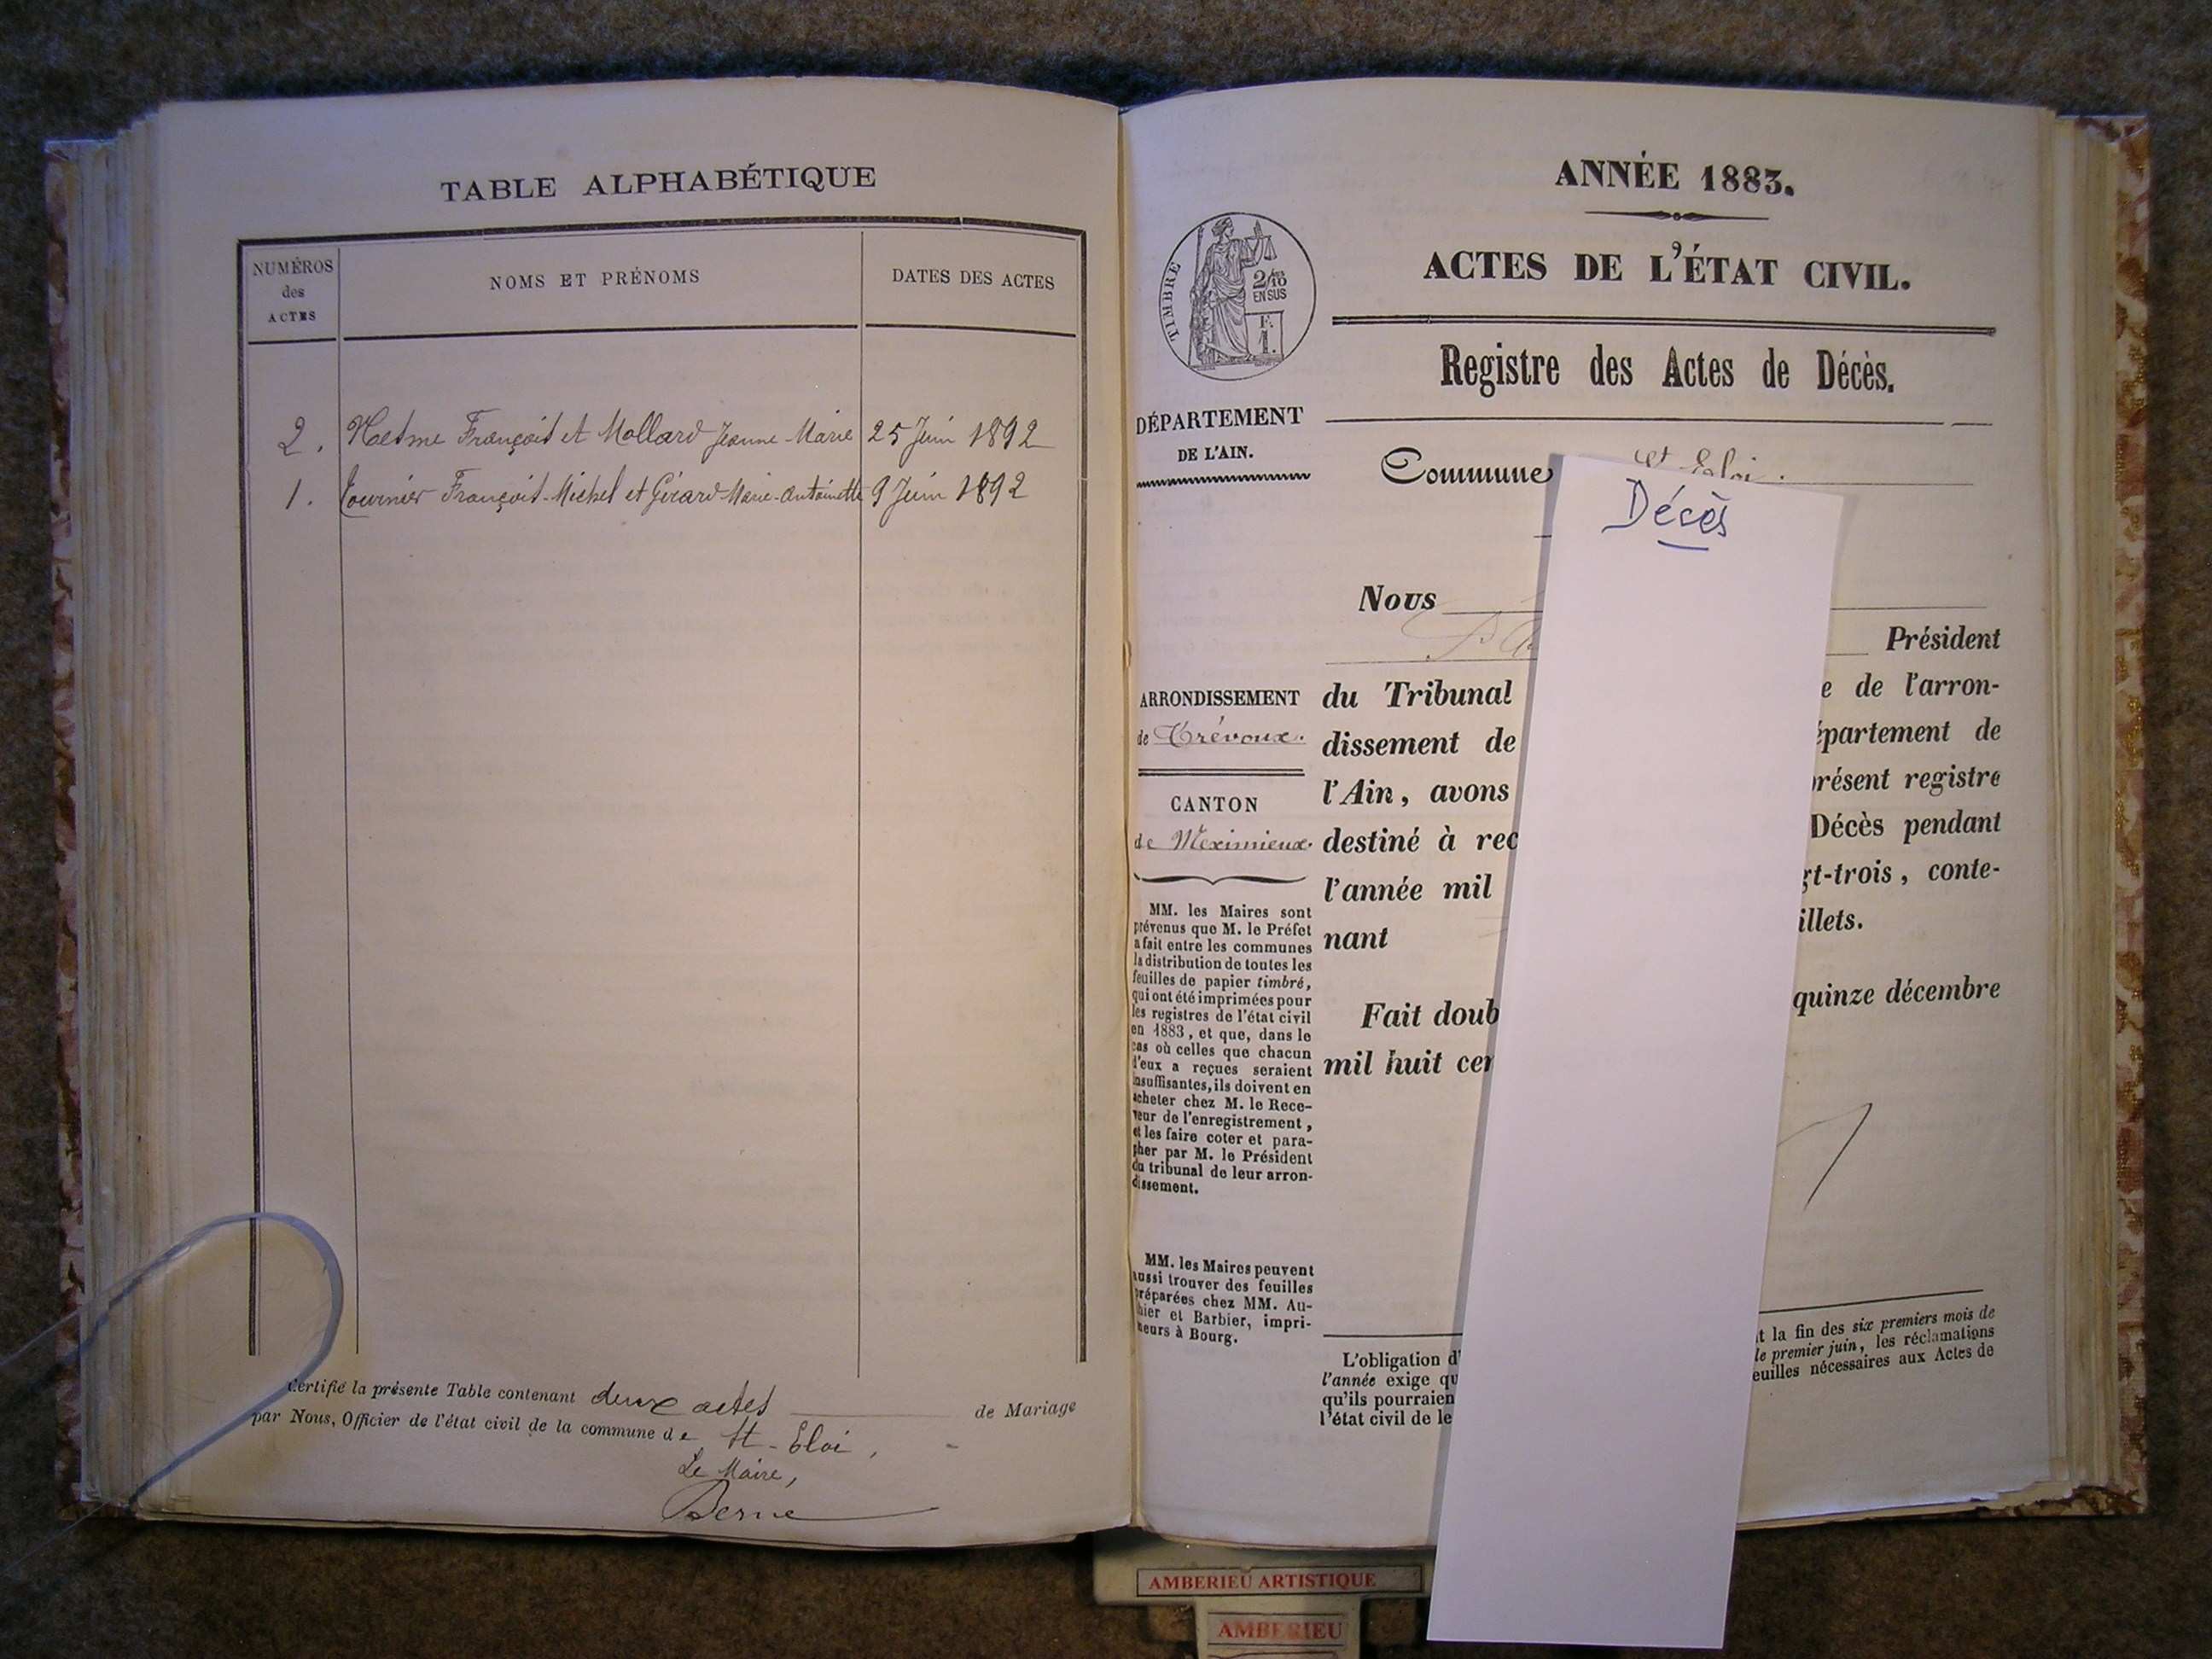 TABLE ALPHABÉTIQUE
NUMÉROS
des
ACTES
NOMS ET PRÉNOMS
DATES DES ACTES
2. François et Mollard Jeanne-Marie 25 Juin 1892
1. Tournier François-Michel et Girard Marie-Antoinette 9 Juin 1892
Certifié la présente Table contenant deux actes de Mariage
par Nous, Officier de l'état civil de la commune de St-Eloi,
Le Maire,
Berne
ANNÉE 1883.
ACTES DE L'ÉTAT CIVIL.
TIMBRE
2/10
EN SUS
F.
1.
Registre des Actes de Décès.
DÉPARTEMENT
DE L'AIN.
Commune St Eloi.
Décès
Nous
Président
ARRONDISSEMENT
de Trévoux.
CANTON
de Meximieux.
MM. les Maires sont
prévenus que M. le Préfet
a fait entre les communes
la distribution de toutes les
feuilles de papier timbré,
qui ont été imprimées pour
les registres de l'état civil
en 1883, et que, dans le
cas où celles que chacun
d'eux a reçues seraient
insuffisantes, ils doivent en
acheter chez M. le Rece-
veur de l'enregistrement,
et les faire coter et para-
pher par M. le Président
du tribunal de leur arron-
dissement.
MM. les Maires peuvent
aussi trouver des feuilles
préparées chez MM. Au-
thier et Barbier, impri-
meurs à Bourg.
du Tribunal e de l'arron-
dissement de épartement de
l'Ain, avons présent registre
destiné à rec Décès pendant
l'année mil gt-trois, conte-
nant illets.
Fait doub quinze décembre
mil huit cen
L'obligation d' t la fin des six premiers mois de
l'année exige qu le premier juin, les réclamations
qu'ils pourraien euilles nécessaires aux Actes de
l'état civil de le
AMBERIEU ARTISTIQUE
AMBERIEU